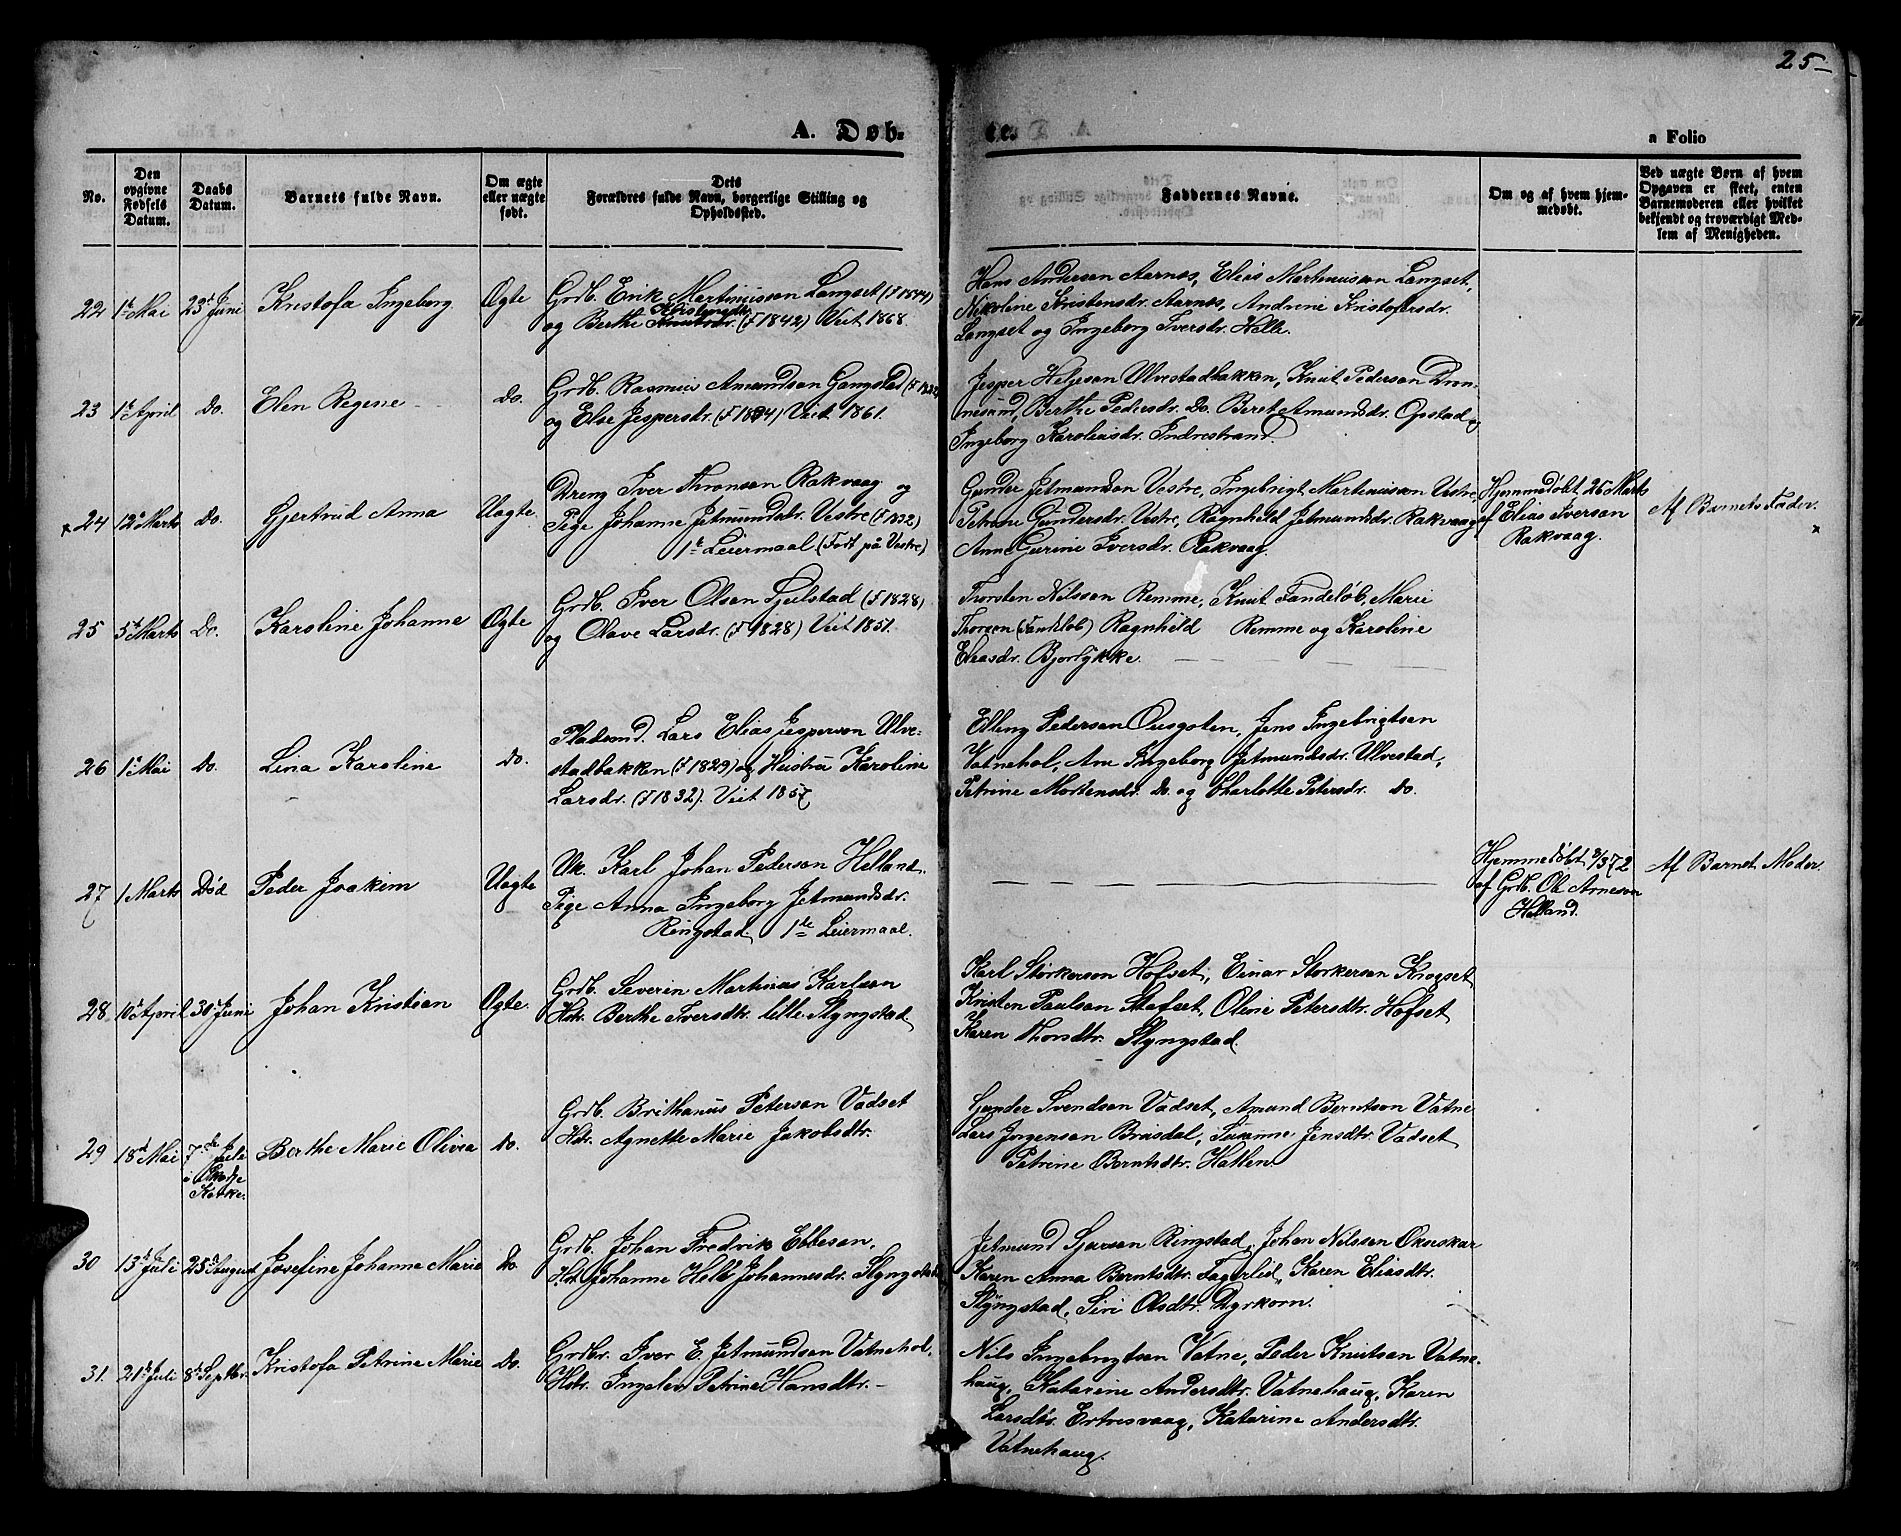 25
A. Døb-
te.
a Folio
No.
Den opgivne Fødsels Datum.
Daabs Datum.
Barnets fulde Navn.
Om ægte eller uægte født.
Dets Forældres fulde Navn, borgerlige Stilling og Opholdssted.
Faddernes Navne.
Om og af hvem hjemmedøbt.
Ved uægte Børn af hvem Opgaven er skeet, enten Barnemoderen eller hvilket bekjendt og troværdigt Medlem af Menigheden.
22 1ste Mai 23de Juni Kristofa Ingeborg Ægte
Grdb. Erik Martinusson Langset (f 1844)
Kristensdtr.
og Berthe (f 1842) Viet 1868.
Hans Andersen Aarnes, Elias Martinusson Langset,
Nikoline Kristensdr. Aarnes, Andrine Kristofersdr.
Langset og Ingeborg Iversdr. Helle.
23 1ste April Do. Elen Regine Do.
Grdb. Rasmus Amundsen Gangstad
og Else Jespersdr. (f 1834) Viet 1861.
Jesper Helgesen Ulvestadbakken, Knut Pedersen Dron-
nesund, Berthe Pedersdr. Do. Beret Amundsdr. Opstad og
Ingeborg Karolusdr. Indrestrand.
× 24 12te Marts Do. Gjertrud Anna Uægte
Dreng Iver Thronsen Rakvaag og
Pige Johanne Jetmundsdr. Vestre
1ste Leiermaal (Født på Vestre)
Gunder Jetmundsen Vestre, Ingebrigt Martinusson Vestre
Petrine Gundersdr. Vestre, Ragnhild Jetmundsdr. Rakvaag
Anne Gurine Iversdr. Rakvaag.
Hjemmedøbt 26 Marts
af Elias Iverson
Rakvaag.
Af Barnets Fader.
×
25 5te Marts Do. Karoline Johanne Ægte
Grdb. Iver Olsen Fjelstad (f 1828)
og Olave Larsdr. (f 1828) Viet 1851.
Thorsten Nilssen Remme, Knut Fandeløb, Marie
Thorsen (Fandeløb) Ragnhild Remme og Karoline
Eliasdr. Bjorlykke.
26 1ste Mai Do. Lina Karoline Do.
Pladsmd. Lars Elias Jesperson Ulve-
stadbakken (f 1829) og Hustru Karoline
Larsdr. (f 1832). Viet 1857
Elling Pedersen Ousgsten, Jens Ingebrigtsen
Vatnehol, Ane Ingeborg Jetmundsdr. Ulvestad,
Petrine Mortensdr. do. og Charlotte Petersdr. Do.
27 1 Marts Død Peder Joakim Uægte
Uk. Karl Johan Pederson Helland.
Pige Anna Ingeborg Jetmundsdr.
Ringstad. 1ste Leiermaal.
Hjemmedøbt 3/3 72
af Grdb. Ole Arneson
Helland.
Af Barnet Moder.
28 10de April 30te Juni Johan Kristian Ægte.
Grdb. Severin Martinus Karlsen
Hstr. Berthe Iversdtr. lille Slyngstad
Karl Størkerson Hofset, Einar Størkerson Krogset
Kristen Paulsen Stafset, Oline Petersdtr. Hofset
Karen Thorsdtr. Slyngstad.
29 18de Mai 7de Juli i Skodje Kirke. Berthe Marie Olivia Do.
Grdb. Brithanus Peterson Vadset
Hstr. Agnette Marie Jakobsdtr.
Gunder Svendsen Vadset, Amund Berntson Vatne
Lars Jørgensen Brusdal, Susanne Jensdtr. Vadset
Petrine Berntsdtr. Hatlen
30 13de Juli 25de August Josefine Johanne Marie Do.
Grdb. Johan Fredrik Ebbeson.
Hst. Johanne Johannesdr. Slyngstad
Jetmund Sjurson Ringstad, Johan Nilsson Oxnskar
Karen Anna Berntsdtr. Fagerlid, Karen Eliasdtr.
Slyngstad, Siri Olsdtr. Dyrkorn.
31. 21de Juli 8de Septbr. Kristofa Petrine Marie Do.
Grdbr. Iver E. Jetmundsen Vatnehol.
Hstr. Ingelev Petrine Hansdtr.
Nils Ingebrigtsen Vatne, Peder Knutsen Vatne-
haug, Katarine Andersdtr. Vatnehaug, Karen
Larsdtr. Ertvesvaag, Katarine Andersdtr.
Vatnehaug.